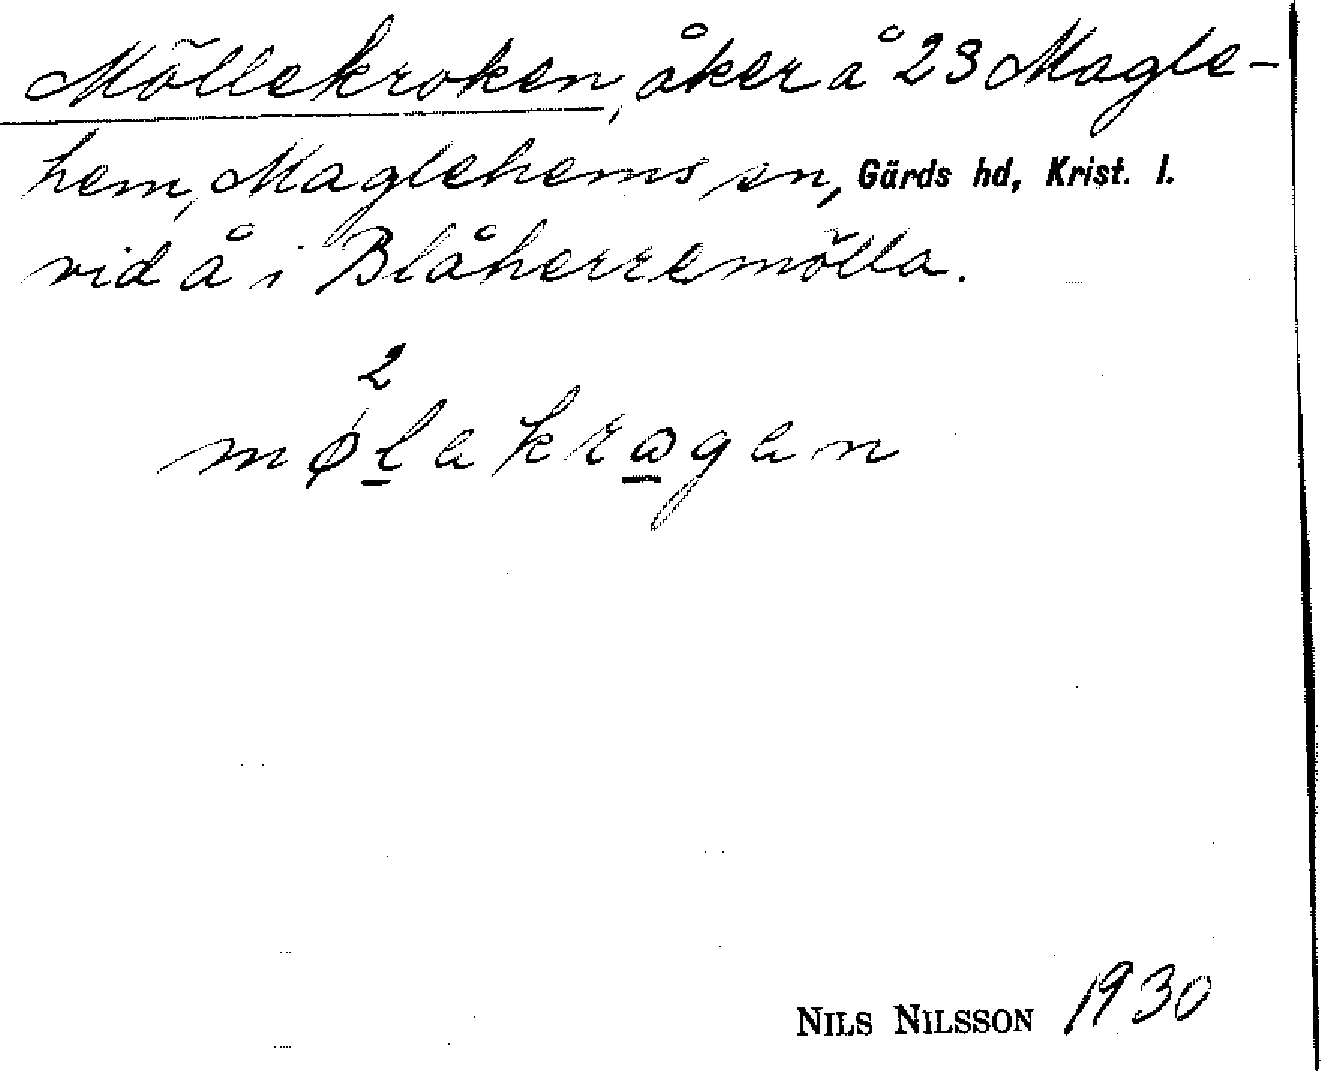 Möllekroken, åker å 23 Magle-
hem, Maglehems sn, Gärds hd, Krist. l.
vid å i Blåherremölla.
2
mølakrogan
NILS NILSSON 1930